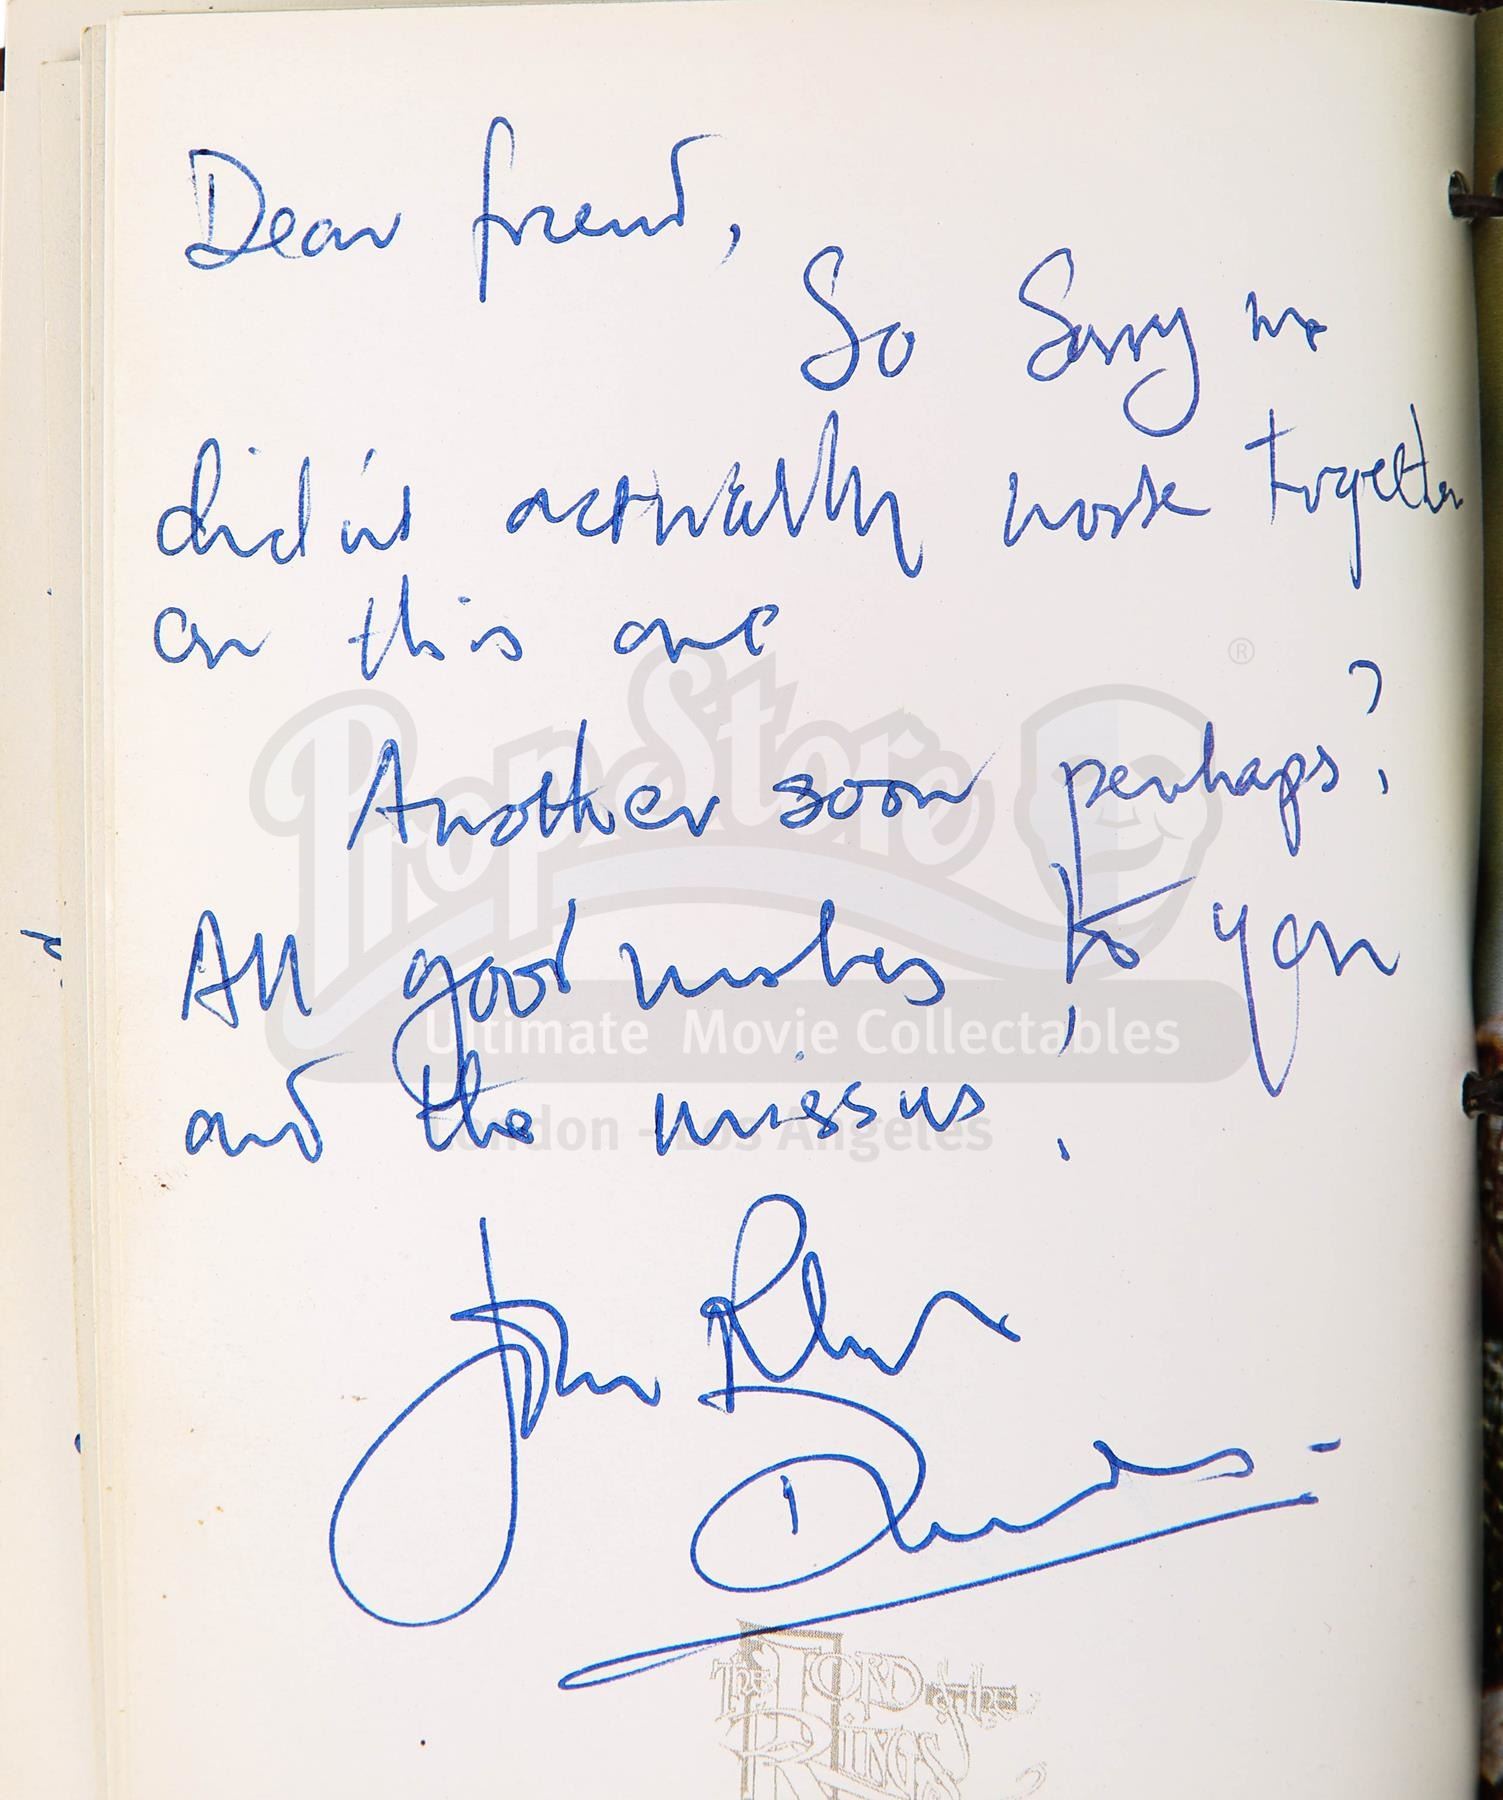 Dear friend,
So Sorry we
didn't actually work together
on this one
Another soon perhaps?
All good wishes, to you
and the missus!
John Rhys
Davies -
PropStore ®
Ultimate Movie Collectables
London - Los Angeles
The LORD of the
RINGS